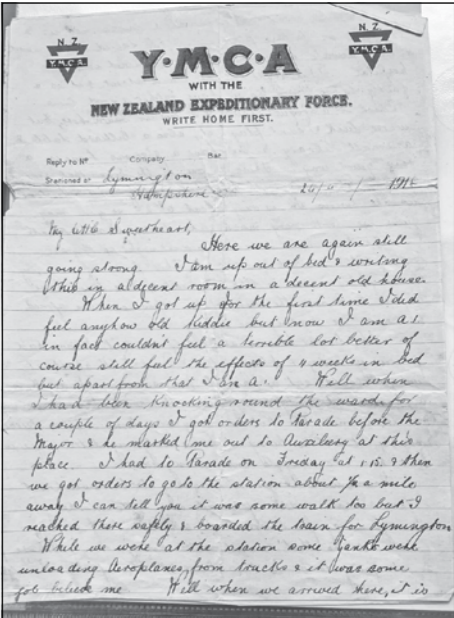 N.Z.
Y.M.C.A.
N.Z.
Y.M.C.A.
Y·M·C·A
WITH THE
NEW ZEALAND EXPEDITIONARY FORCE.
WRITE HOME FIRST.
Reply to Nº Company Bat.
Stationed at Lymington
Hampshire 191
My Little Sweetheart,
Here we are again still
going strong. I am up out of bed & writing
this in a decent room in a decent old house.
When I got up for the first time I did
feel anyhow old kiddie but now I am A1
in fact couldn't feel a terrible lot better of
course still feel the effects of 4 weeks in bed
but apart from that I am A1. Well when
I had been knocking round the wards for
a couple of days I got orders to Parade before the
Major & he marked me out to Auxilery at this
place. I had to Parade on Friday at 1.15 & then
we got orders to go to the station about a mile
away I can tell you it was some walk too but I
reached there safely & boarded the train for Lymington
While we were at the station some Yanks were
unloading Aeroplanes from trucks & it was some
job believe me Well when we arrived here, it is